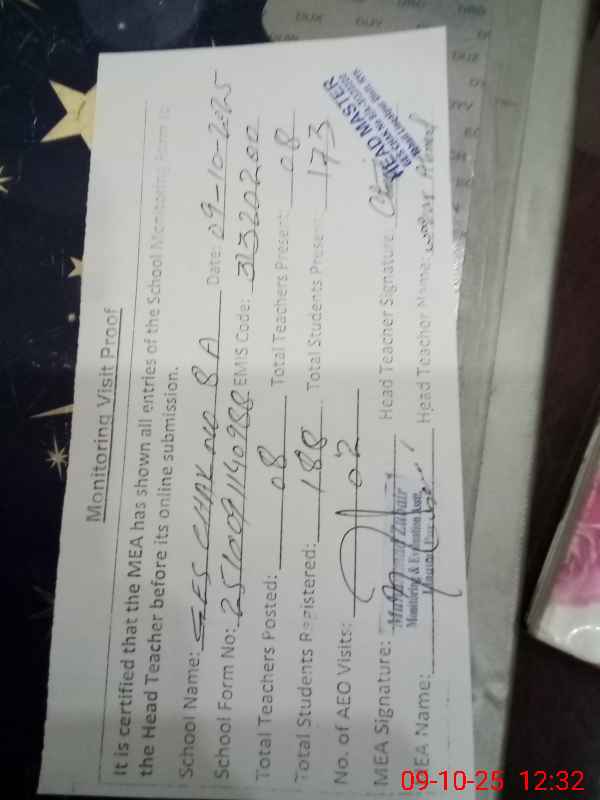 Monitoring Visit Proof
It is certified that the MEA has shown all entries of the School Monitoring Form to
the Head Teacher before its online submission.
School Name: GES CHAK NO 8 A Date: 09-10-2025
School Form No: EMIS Code: 31320200
Total Teachers Posted: 08 Total Teachers Present: 08
Total Students Registered: 188 Total Students Present: 173
No. of AEO Visits: 02
MEA Signature: Head Teacher Signature:
Zubair
Monitoring & Evaluation Asstt.
MEA Name: Head Teacher Name: Ahmed
HEAD MASTER
09-10-25 12:32